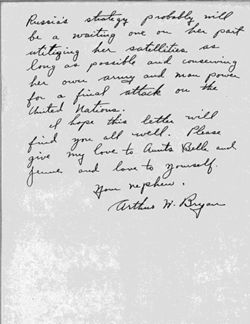 Russia's strategy probably will
be a waiting one on her part
utilizing her satellites as
long as possible and conserving
her own army and man power
for a final attack on the
United Nations.
I hope this letter will
find you all well. Please
give my love to Aunts Belle and
Jennie and love to yourself.
Your nephew,
Arthur W. Bryan